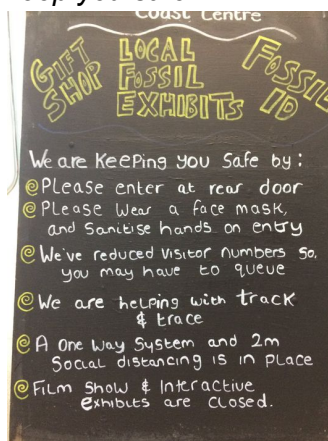 Coast Centre
GIFT SHOP
LOCAL FOSSIL EXHIBITS
FOSSIL ID
We are KeePing you Safe by:
Please enter at rear door
Please Wear a face mask,
and Sanitise hands on entry
We've reduced Visitor numbers So,
you may have to queue
We are helping with track
& trace
A One Way System and 2m
Social distancing is in Place
Film Show & Interactive
exhibits are closed.